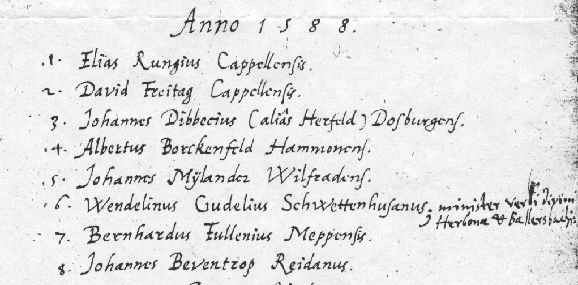 Anno 1588.
.1. Elias Rungius Cappellensis.
2. David Freitag Cappellensis.
3. Johannes Dibbecius (aliâs Herfeld) Dosburgens.
.4. Albertus Borckenfeld Hammonens.
.5. Johannes Mÿlander Wilfradens.
.6. Wendelinus Cudelius Schwettenhusanus, minister verbi divini
Herbonæ et
7. Bernhardus Fullenius Meppensis.
8. Johannes Beventrop Reidanus.